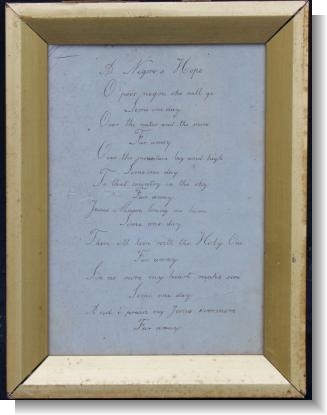 A Negro's Hope
O poor negro he will go
Some one day
Over the water and the snow
Far away
Over the mountain big and high
Some one day
To that country in the sky
Far away
Jesus bring me home
Some one day
Then I'll live with the Holy One
Far away
Sin no more my heart make sore
Some one day
And I praise my Jesus evermore
Far away